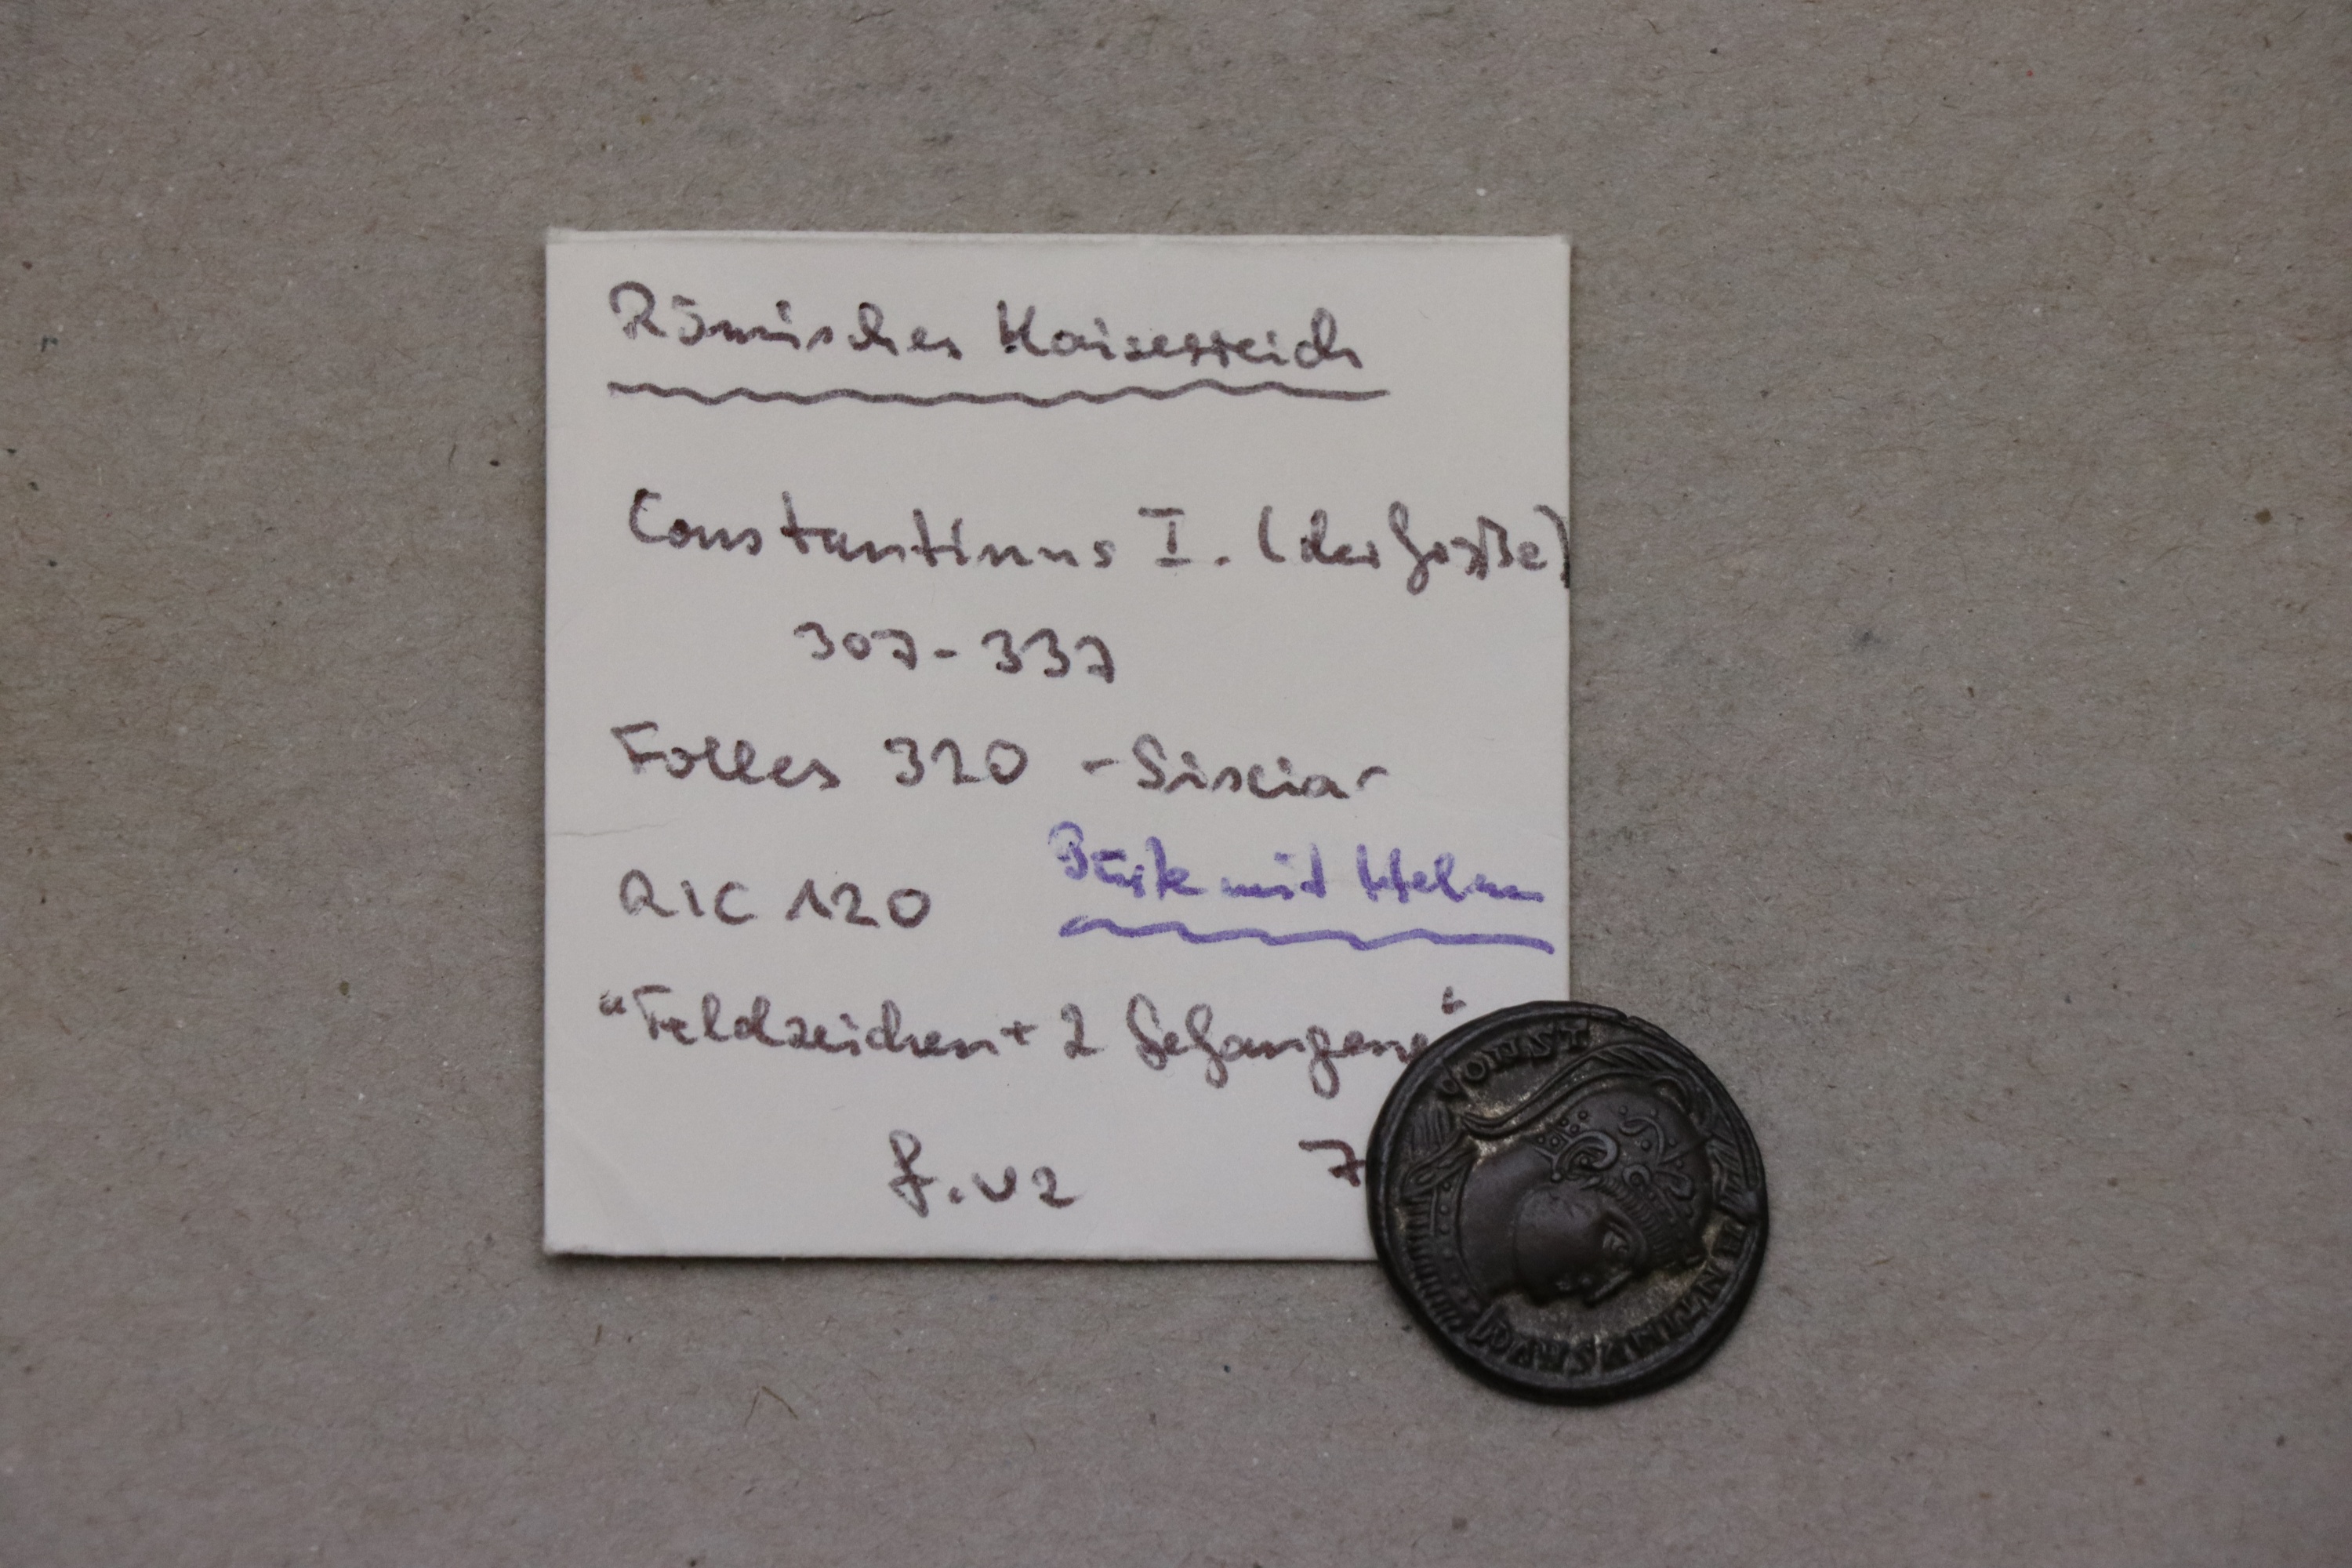 Römisches Kaiserreich
Constantinus I. (der Große)
307-337
Folles 320 -Siscia-
RIC 120
Büste mit Helm
"Feldzeichen + 2 Gefangene"
f.vz
7
CONST
ANTINVS AVG